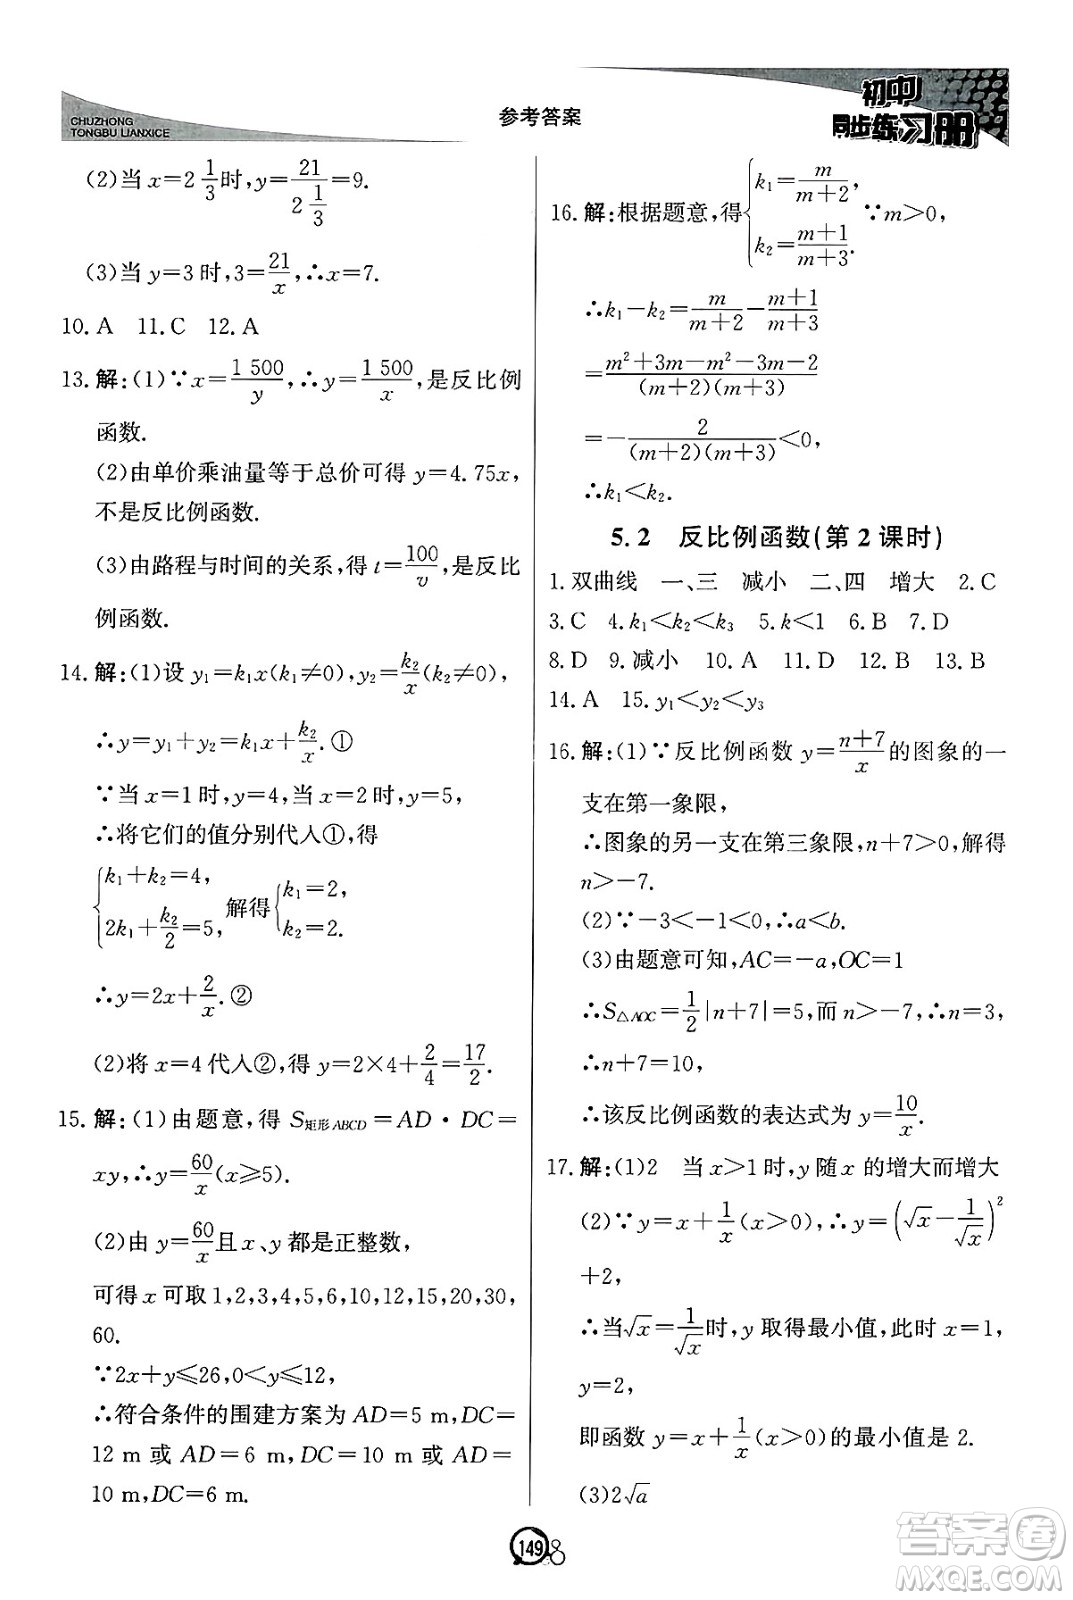 CHUZHONG
TONGBU LIANXICE
参考答案
初中
同步练习册
(2)当 x=2 1/3 时,y=21/(2 1/3)=9.
(3)当 y=3 时,3=21/x,∴x=7.
10. A 11. C 12. A
13. 解:(1)∵x=1 500/y,∴y=1 500/x,是反比例
函数.
(2)由单价乘油量等于总价可得 y=4.75x,
不是反比例函数.
(3)由路程与时间的关系,得 t=100/v,是反比
例函数.
14. 解:(1)设 y₁=k₁x(k₁≠0),y₂=k₂/x(k₂≠0),
∴y=y₁+y₂=k₁x+k₂/x.①
∵当 x=1 时,y=4,当 x=2 时,y=5,
∴将它们的值分别代人①,得
{k₁+k₂=4, 2k₁+k₂/2=5, 解得{k₁=2, k₂=2.
∴y=2x+2/x.②
(2)将 x=4 代人②,得 y=2×4+2/4=17/2.
15. 解:(1)由题意,得 S矩形ABCD=AD·DC=
xy,∴y=60/x(x≥5).
(2)由 y=60/x且 x、y 都是正整数,
可得 x 可取 1,2,3,4,5,6,10,12,15,20,30,
60.
∵2x+y≤26,0<y≤12,
∴符合条件的围建方案为 AD=5 m,DC=
12 m 或 AD=6 m,DC=10 m 或 AD=
10 m,DC=6 m.
16. 解:根据题意,得{k₁=m/(m+2), k₂=(m+1)/(m+3). ∵m>0,
∴k₁-k₂=m/(m+2)-(m+1)/(m+3)
=(m²+3m-m²-3m-2)/((m+2)(m+3))
=-2/((m+2)(m+3))<0,
∴k₁<k₂.
5.2 反比例函数(第 2 课时)
1. 双曲线 一、三 减小 二、四 增大 2. C
3. C 4. k₁<k₂<k₃ 5. k<1 6. B 7. D
8. D 9. 减小 10. A 11. D 12. B 13. B
14. A 15. y₁<y₂<y₃
16. 解:(1)∵反比例函数 y=(n+7)/x的图象的一
支在第一象限,
∴图象的另一支在第三象限,n+7>0,解得
n>-7.
(2)∵-3<-1<0,∴a<b.
(3)由题意可知,AC=-a,OC=1
∴S△AOC=1/2|n+7|=5,而 n>-7,∴n=3,
∴n+7=10,
∴该反比例函数的表达式为 y=10/x.
17. 解:(1)2 当 x>1 时,y 随 x 的增大而增大
(2)∵y=x+1/x(x>0),∴y=(√x-1/√x)²
+2,
∴当√x=1/√x时,y 取得最小值,此时 x=1,
y=2,
即函数 y=x+1/x(x>0)的最小值是 2.
(3)2√a
149
答案卷
MXQE.COM